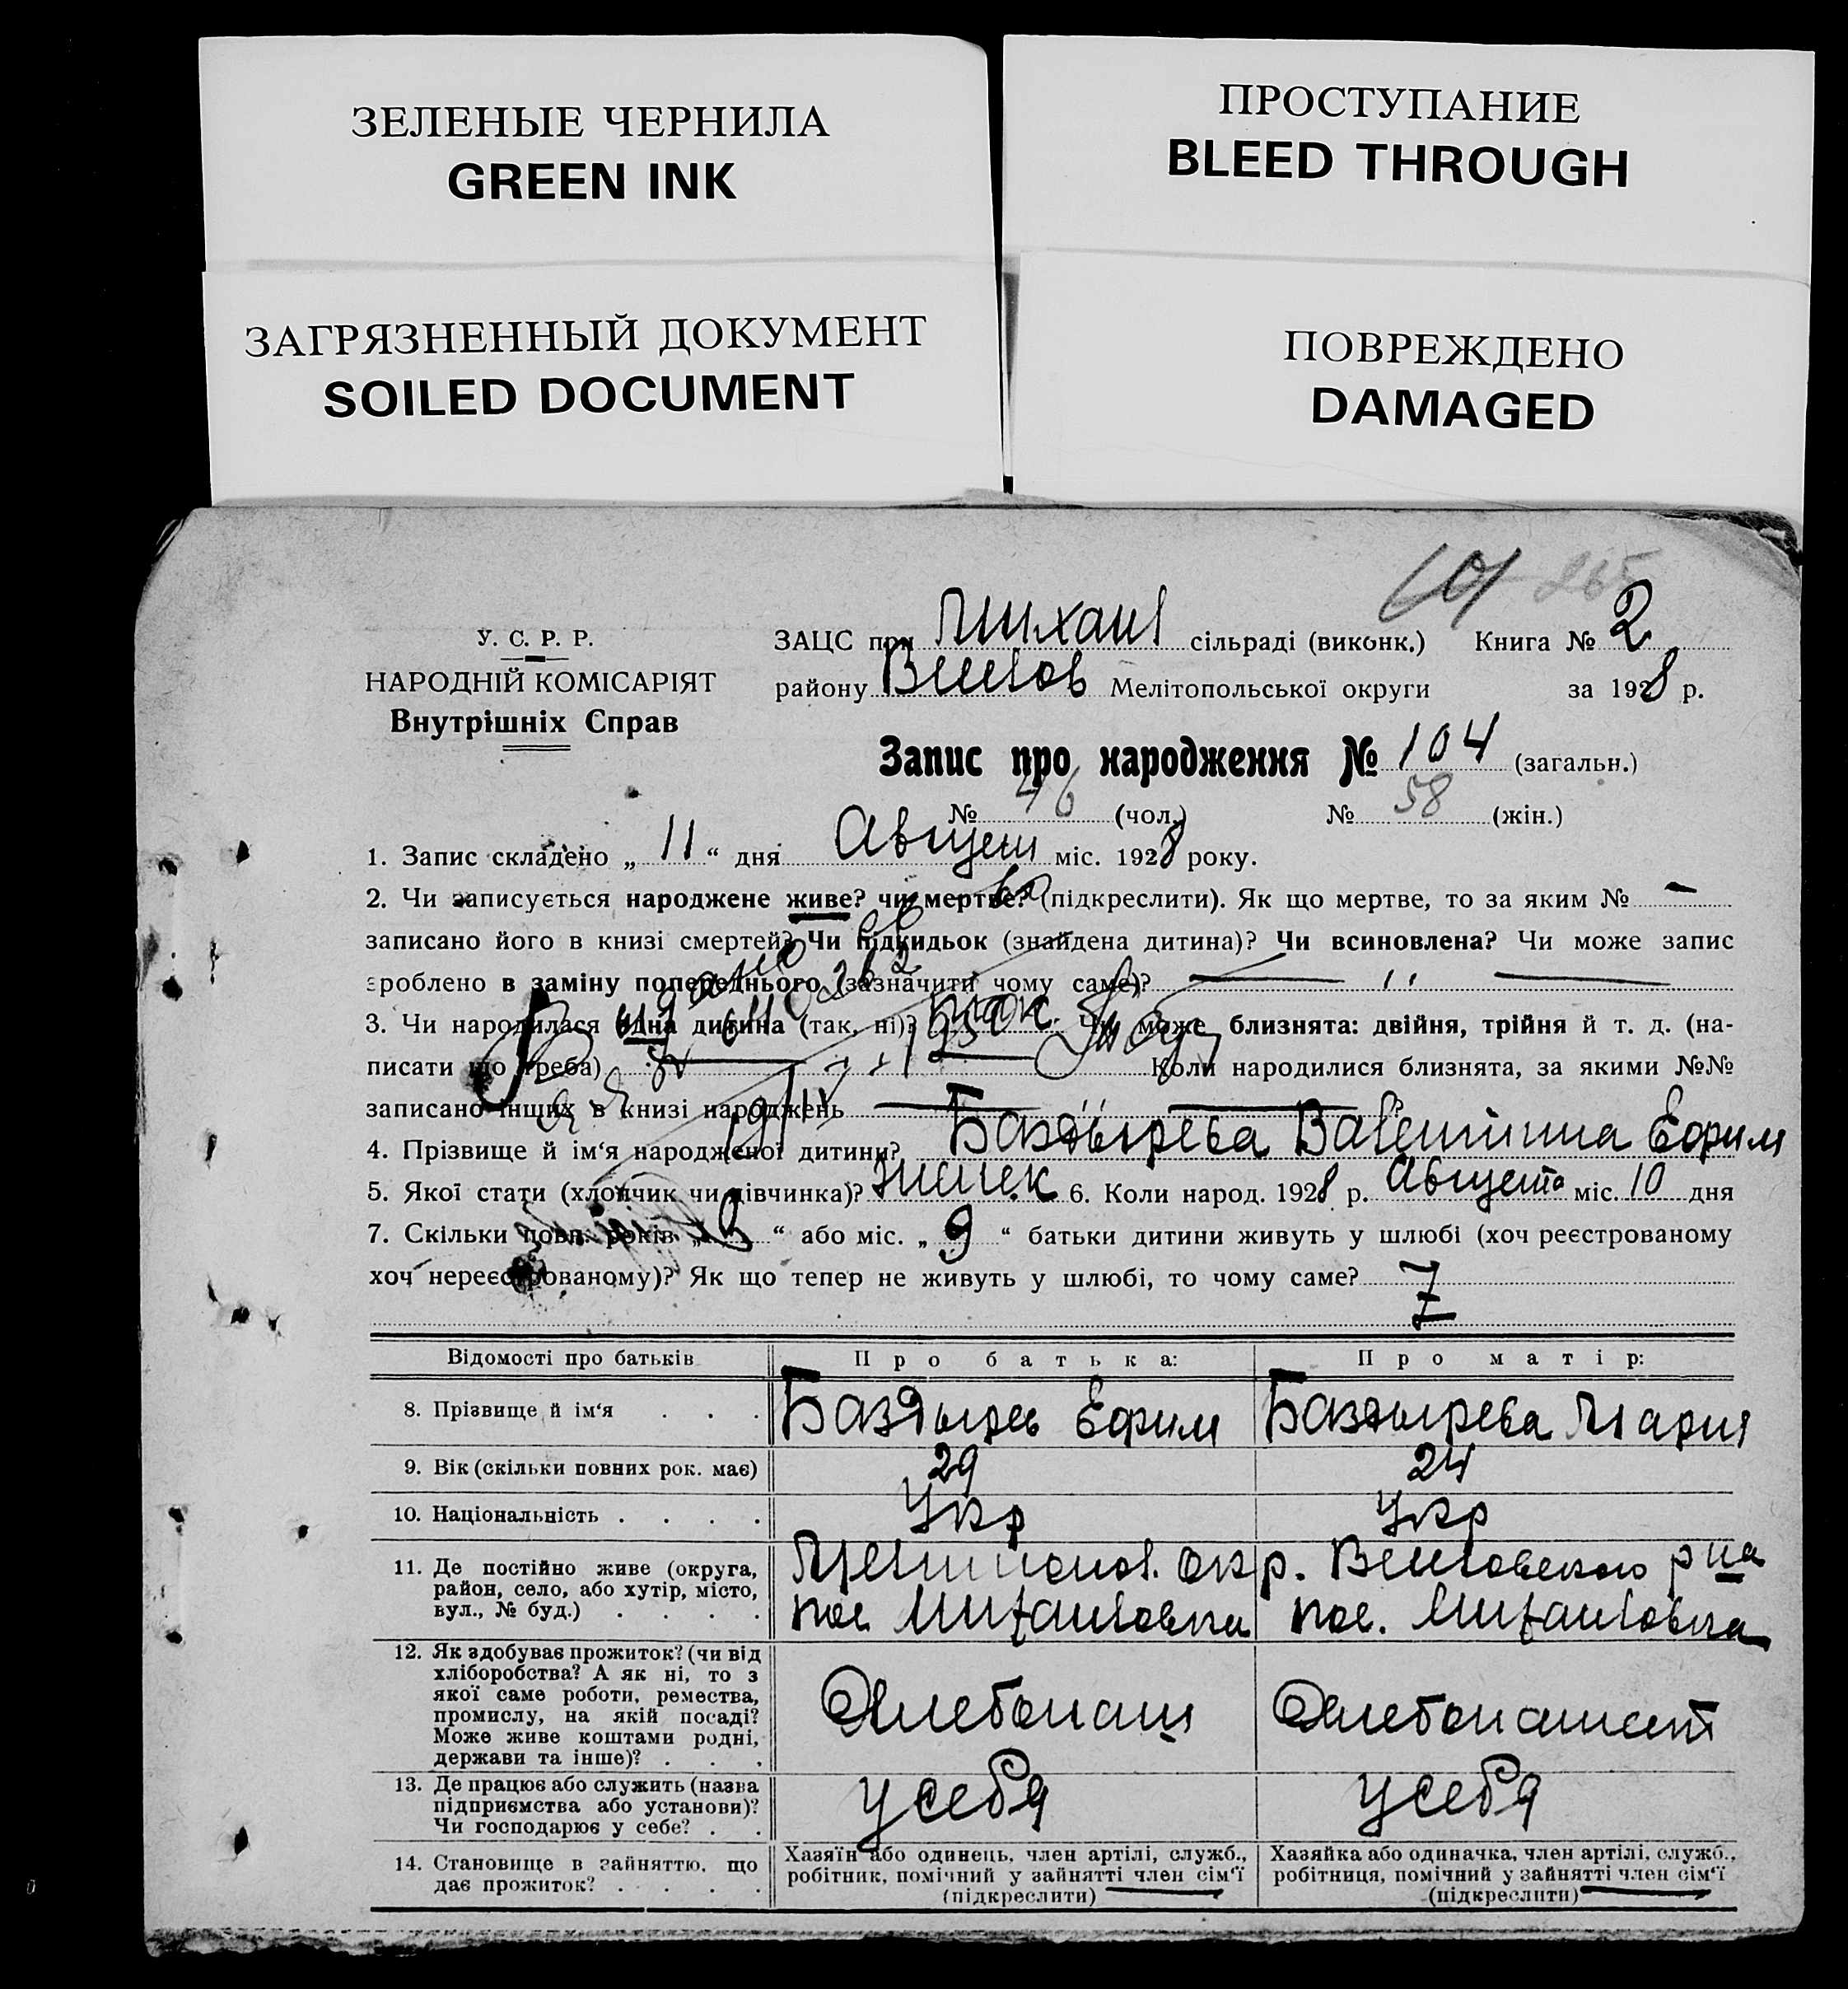 ЗЕЛЕНЫЕ ЧЕРНИЛА
GREEN INK
ПРОСТУПАНИЕ
BLEED THROUGH
ЗАГРЯЗНЕННЫЙ ДОКУМЕНТ
SOILED DOCUMENT
ПОВРЕЖДЕНО
DAMAGED
101 265
У. С. Р. Р.
НАРОДНІЙ КОМІСАРІЯТ
Внутрішніх Справ
ЗАЦС при Михайл сільраді (виконк.) Книга № 2
району Мелітопольської округи за 1928 р.
Запис про народження № 104 (загальн.)
№ 46 (чол.) № 58 (жін.)
1. Запис складено „ 11 “ дня Август міс. 1928 року.
2. Чи записується народжене живе? чи мертве? (підкреслити). Як що мертве, то за яким № —
записано його в книзі смертей? Чи підкидьок (знайдена дитина)? Чи всиновлена? Чи може запис
зроблено в заміну попереднього (зазначити чому саме)? — ,, —
3. Чи народилася одна дитина (так, ні)? так. Чи може близнята: двійня, трійня й т. д. (на-
писати що треба) Коли народилися близнята, за якими №№
записано інших в книзі народжень
4. Прізвище й ім‘я народженої дитини? Баздырева Валентина Ефим
5. Якої стати (хлопчик чи дівчинка)? 6. Коли народ. 1928 р. Августа міс. 10 дня
7. Скільки повн. років „ “ або міс. „ 9 “ батьки дитини живуть у шлюбі (хоч реєстрованому
хоч нереєстрованому)? Як що тепер не живуть у шлюбі, то чому саме?
Відомості про батьків
Про батька:
Про матір:
8. Прізвище й ім‘я . . .
Баздырев Ефим
Баздырева Мария
9. Вік (скільки повних рок. має)
29
24
10. Національність . . . .
Укр
Укр
11. Де постійно живе (округа,
район, село, або хутір, місто,
вул., № буд.) . . . .
Мелитопол. окр. р на
пос. Михайловка
пос. Михайловка
12. Як здобуває прожиток? (чи від
хліборобства? А як ні, то з
якої саме роботи, ремества,
промислу, на якій посаді?
Може живе коштами родні,
держави та інше)? . . .
Хлебопаш
Хлебопашест
13. Де працює або служить (назва
підприємства або установи)?
Чи господарює у себе? . .
у себя
у себя
14. Становище в зайняттю, що
дає прожиток? . . . .
Хазяїн або одинець, член артілі, служб.,
робітник, помічний у зайнятті член сім‘ї
(підкреслити)
Хазяйка або одиначка, член артілі, служб.,
робітниця, помічний у зайнятті член сім‘ї
(підкреслити)